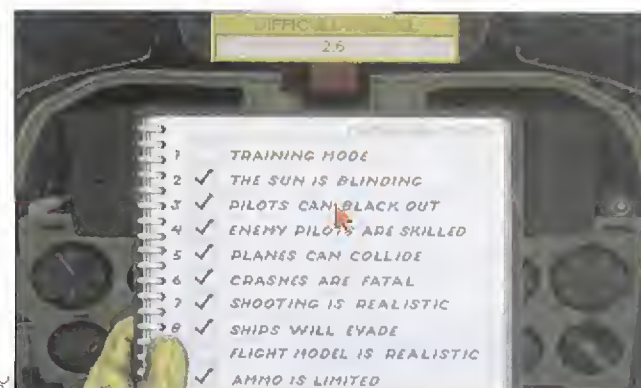 2.6
1 TRAINING MODE
2 ✓ THE SUN IS BLINDING
3 ✓ PILOTS CAN BLACK OUT
4 ✓ ENEMY PILOTS ARE SKILLED
5 ✓ PLANES CAN COLLIDE
6 ✓ CRASHES ARE FATAL
7 ✓ SHOOTING IS REALISTIC
8 ✓ SHIPS WILL EVADE
FLIGHT MODEL IS REALISTIC
✓ AMMO IS LIMITED